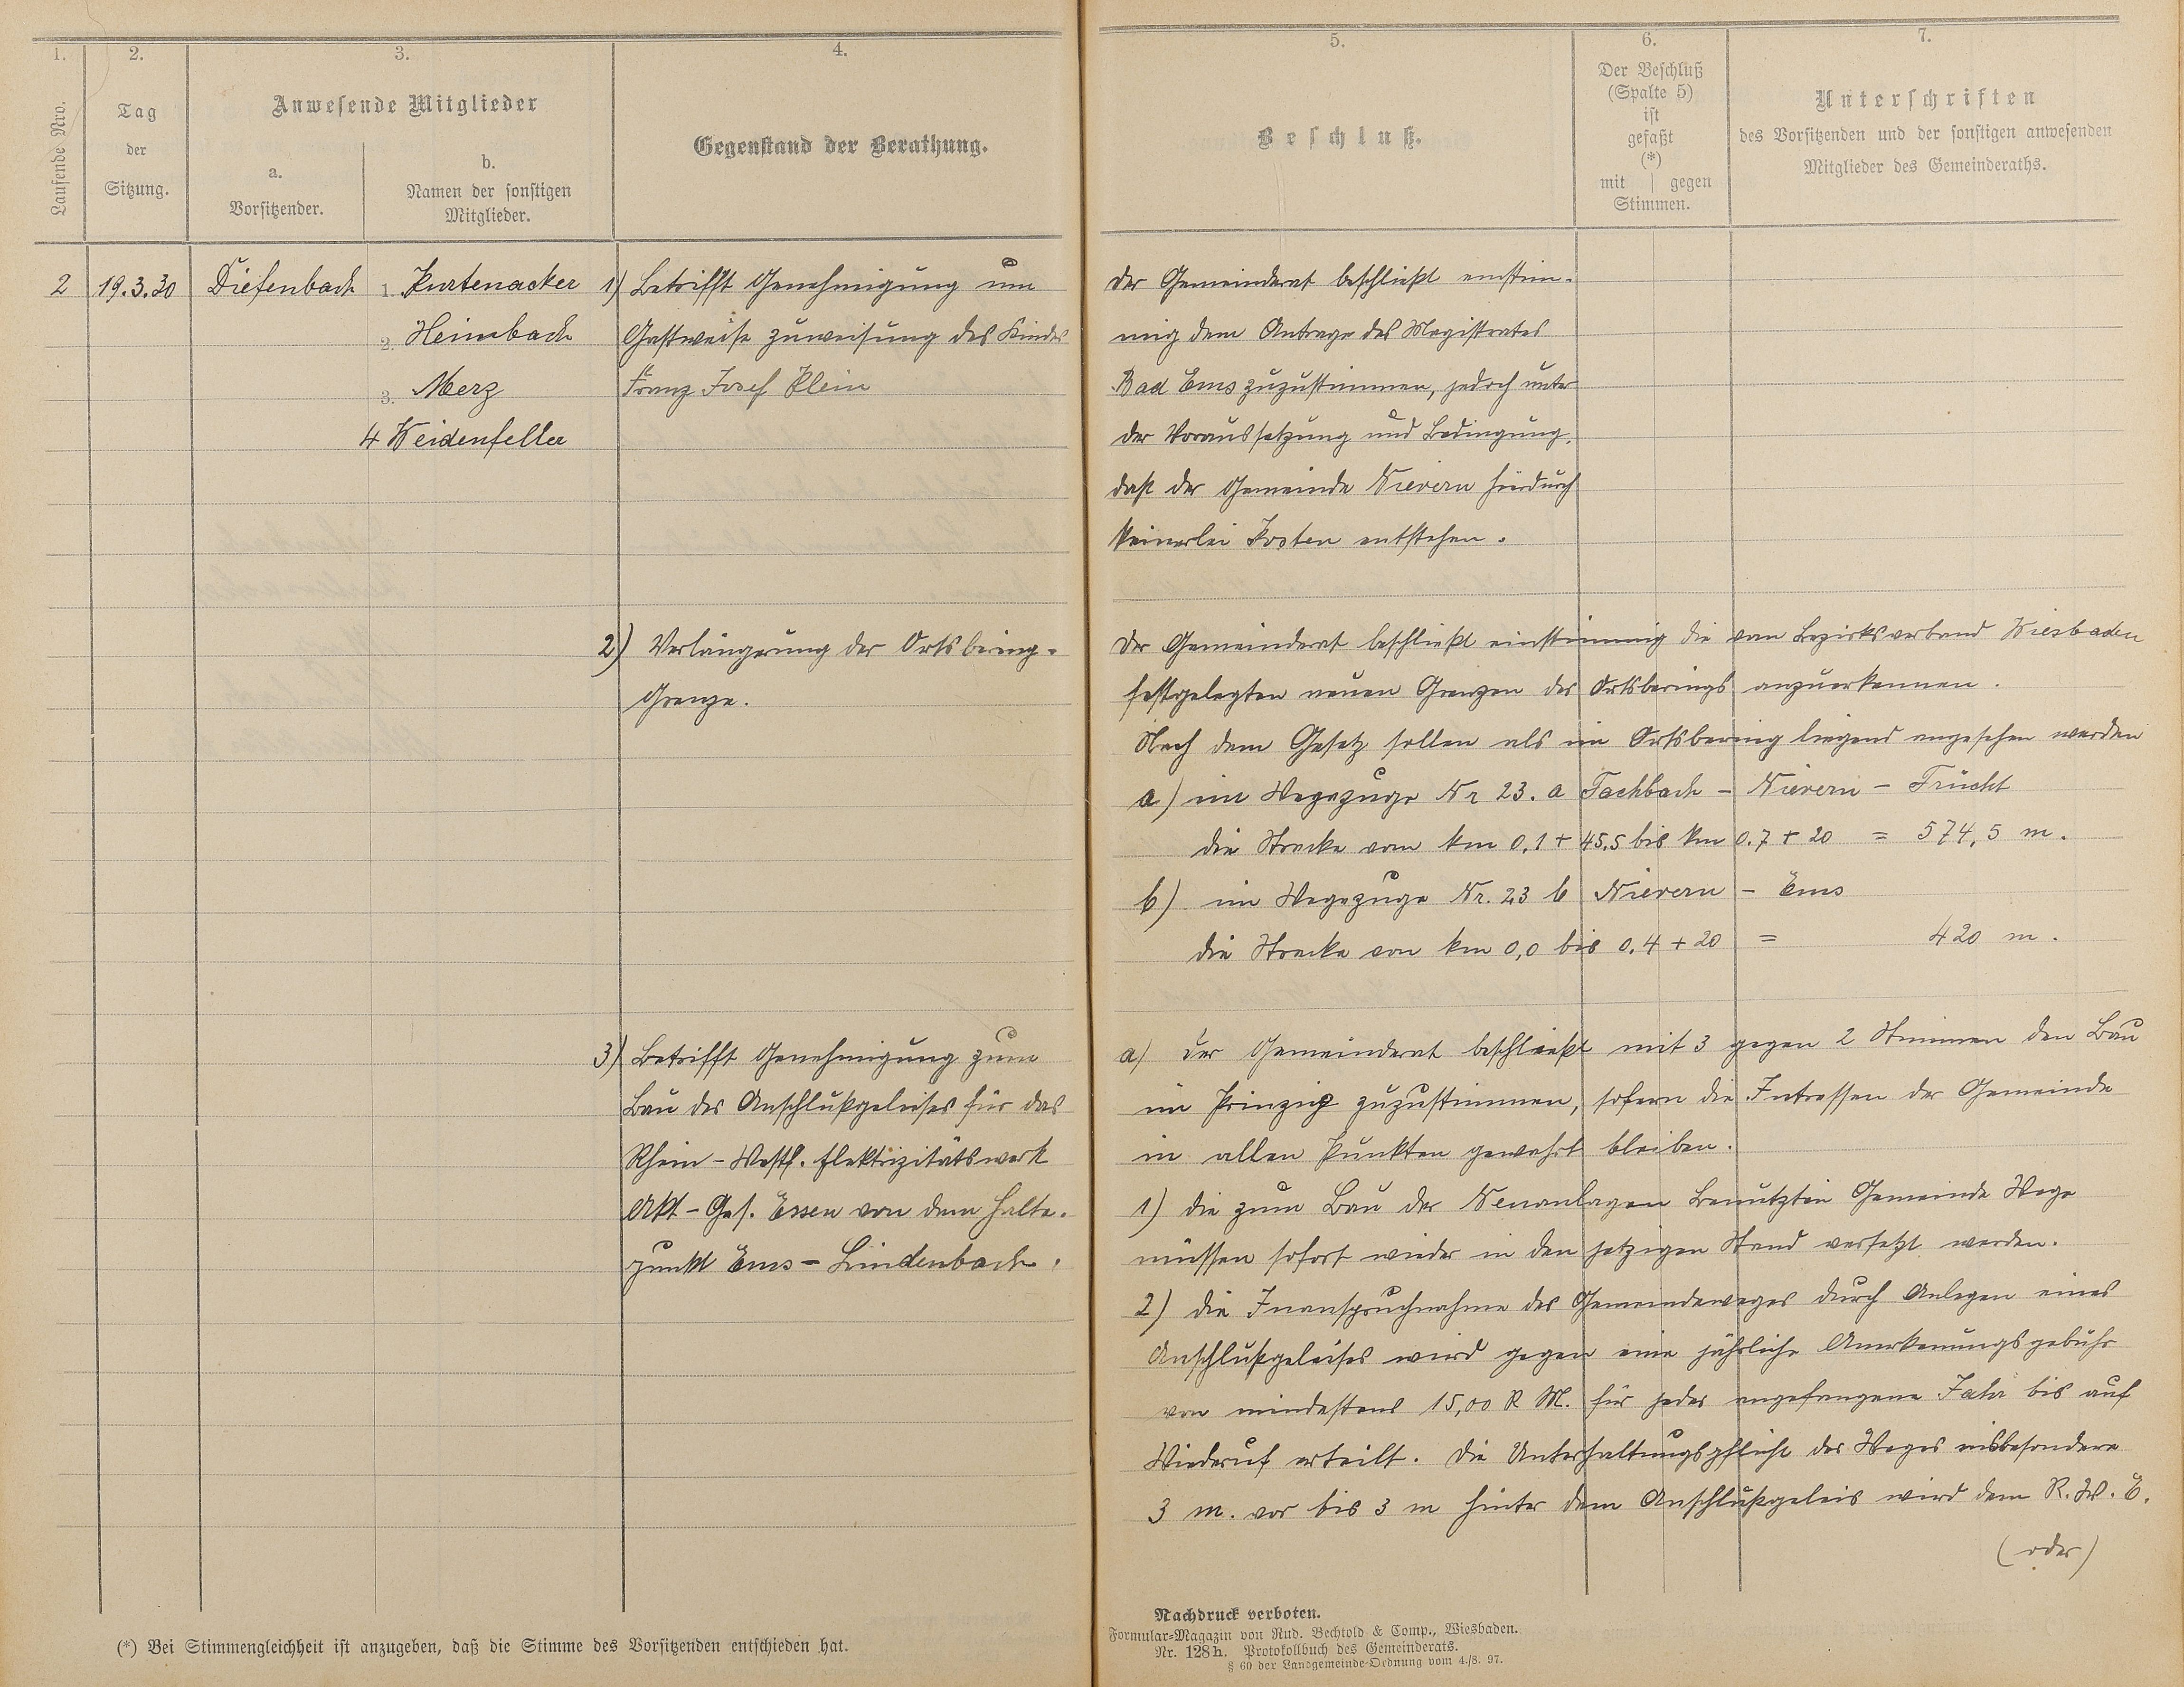 1.
2.
3.
4.
Laufende Nro.
Tag
der
Sitzung.
Anwesende Mitglieder
a.
Vorsitzender.
b.
Namen der sonstigen
Mitglieder.
Gegenstand der Berathung.
2
19.3.30
Diefenbach
1. Kurtenacker
2. Heimbach
3. Merz
4 Weidenfeller
1) Betrifft Genehmigung um
Gastweise zuweisung des Kindes
Franz Josef Klein
2) Verlängerung der Ortsbering-
Grenze.
3) Betrifft Genehmigung zum
Bau des Anschlußgeleises für das
Rhein-Westf. Elektrizitätswerk
Akt-Ges. Essen von dem Halte-
punkt Ems-Lindenbach.
(*) Bei Stimmengleichheit ist anzugeben, daß die Stimme des Vorsitzenden entschieden hat.
5.
6.
7.
Beschluß.
Der Beschluß
(Spalte 5)
ist
gefaßt
(*)
mit | gegen
Stimmen.
Unterschriften
des Vorsitzenden und der sonstigen anwesenden
Mitglieder des Gemeinderaths.
Der Gemeinderat beschließt einstim-
mig dem Antrage des Magistrates
Bad Ems zuzustimmen, jedoch unter
der Voraussetzung und Bedingung,
daß der Gemeinde Nievern hierdurch
keinerlei Kosten entstehen.
Der Gemeinderat beschließt einstimmig die vom Bezirksverband Wiesbaden
festgelegten neuen Grenzen des Ortsberings anzuerkennen.
Nach dem Gesetz sollen als im Ortsbering liegend angesehen werden
a) im Wegezuge Nr 23. a Fachbach - Nievern - Frücht
die Strecke vom km 0.1 + 45.5 bis km 0.7 + 20 = 574,5 m.
b) im Wegezuge Nr. 23 b Nievern - Ems
die Strecke von km 0,0 bis 0.4 + 20 = 420 m.
a) Der Gemeinderat beschließt mit 3 gegen 2 Stimmen den Bau
im Prinzip zuzustimmen, sofern die Intressen der Gemeinde
in allen Punkten gewahrt bleiben.
1) die zum Bau der Neuanlagen Benutzten Gemeinde Wege
müssen sofort wieder in den jetzigen Stand versetzt werden.
2) die Inanspruchnahme des Gemeindeweges durch Anlegen eines
Anschlußgeleises wird gegen eine jährliche Anerkenungsgebühr
von mindestens 15,00 R M. für jedes angefangene Jahr bis auf
Wiederuf erteilt. Die Unterhaltungspflicht des Weges insbesondere
3 m. vor bis 3 m hinter dem Anschlußgeleis wird dem R.W.E.
(oder)
Nachdruck verboten.
Formular-Magazin von Rud. Bechtold & Comp., Wiesbaden.
Nr. 128h. Protokollbuch des Gemeinderats.
§ 60 der Landgemeinde-Ordnung vom 4./8. 97.